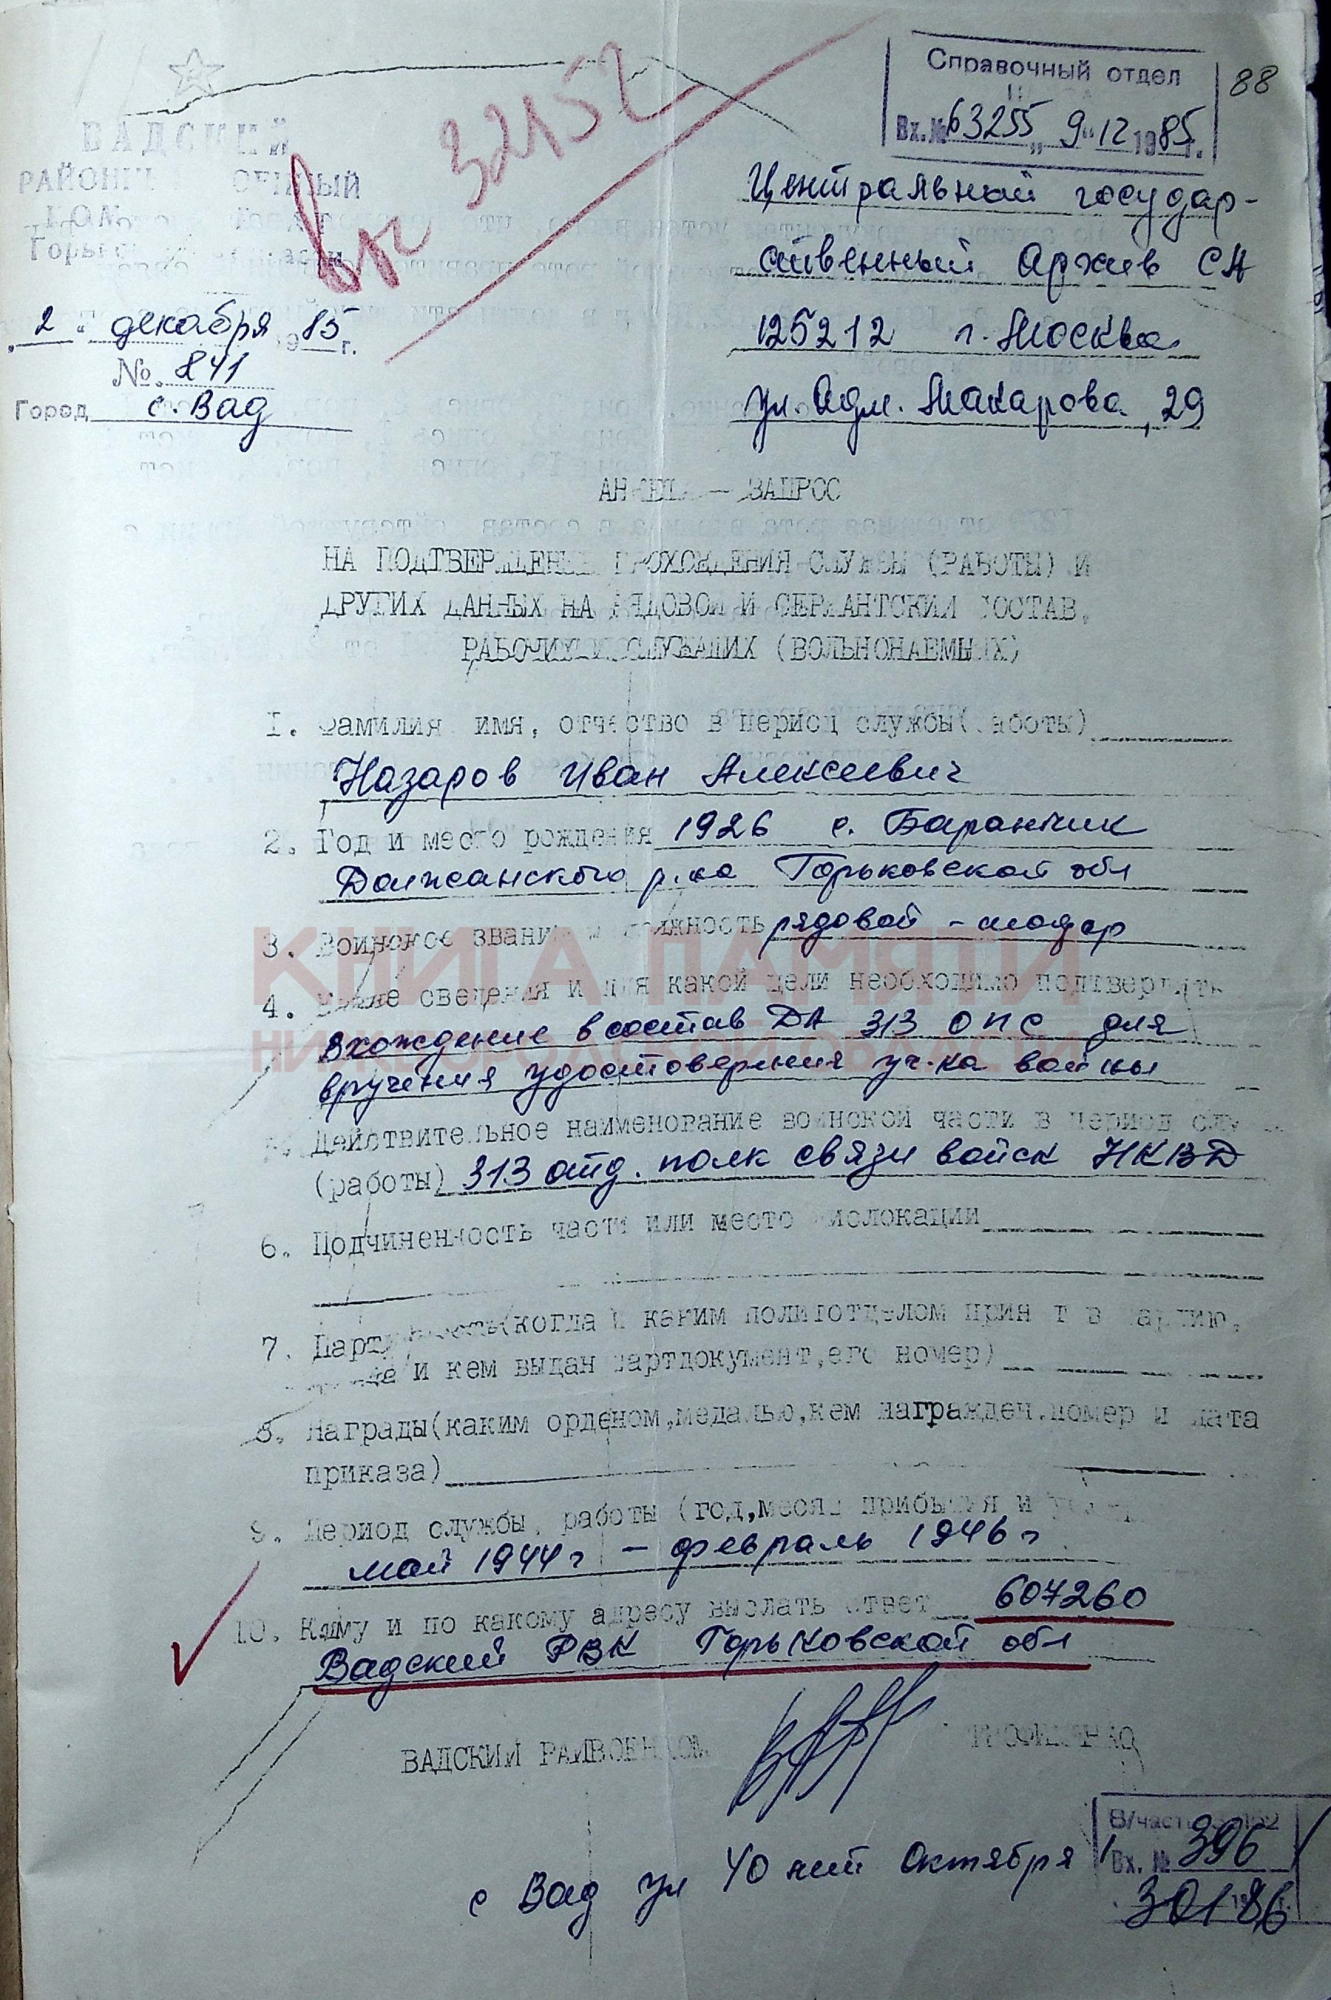 Справочный отдел
88
Вх.№ 63255 „9“ 12 1985г.
32152
ВАДСКИЙ
Центральный государ-
ственный архив СА
125212 г. Москва
ул. Адм. Макарова, 29
„2“ декабря 1985г.
№ 841
Город с. Вад
АНКЕТА — ЗАПРОС
НА ПОДТВЕРЖДЕНИЕ ПРОХОЖДЕНИЯ СЛУЖБЫ (РАБОТЫ) И
ДРУГИХ ДАННЫХ НА РЯДОВОЙ И СЕРЖАНТСКИЙ СОСТАВ,
РАБОЧИХ И СЛУЖАЩИХ (ВОЛЬНОНАЕМНЫХ)
1. Фамилия имя, отчество в период службы(работы)
Назаров Иван Алексеевич
2. Год и место рождения 1926 с. Баранчик
р-на Горьковской обл
3. Воинское звание и должность рядовой -
КНИГА ПАМЯТИ
4. Какие сведения и для какой цели необходимо подтвердить
вхождение в состав ДА 313 ОПС для
НИЖЕГОРОДСКОЙ ОБЛАСТИ
вручения удостоверения уч-ка войны
5. Действительное наименование воинской части в период
(работы) 313 отд. полк связи войск НКВД
6. Подчиненность части или место дислокации
7. Партийность(когда и каким политотделом принят в партию,
и кем выдан партдокумент,его номер)
8. Награды(каким орденом,медалью,кем награжден.номер и дата
приказа)
9. Период службы, работы (год,месяц прибытия и
май 1944г – февраль 1946г
10. Кому и по какому адресу выслать ответ 607260
Вадский РВК Горьковской обл
ВАДСКИЙ РАЙВОЕНКОМ
В/часть
с Вад ул 40 лет Октября 1
Вх. № 396
30 1 86